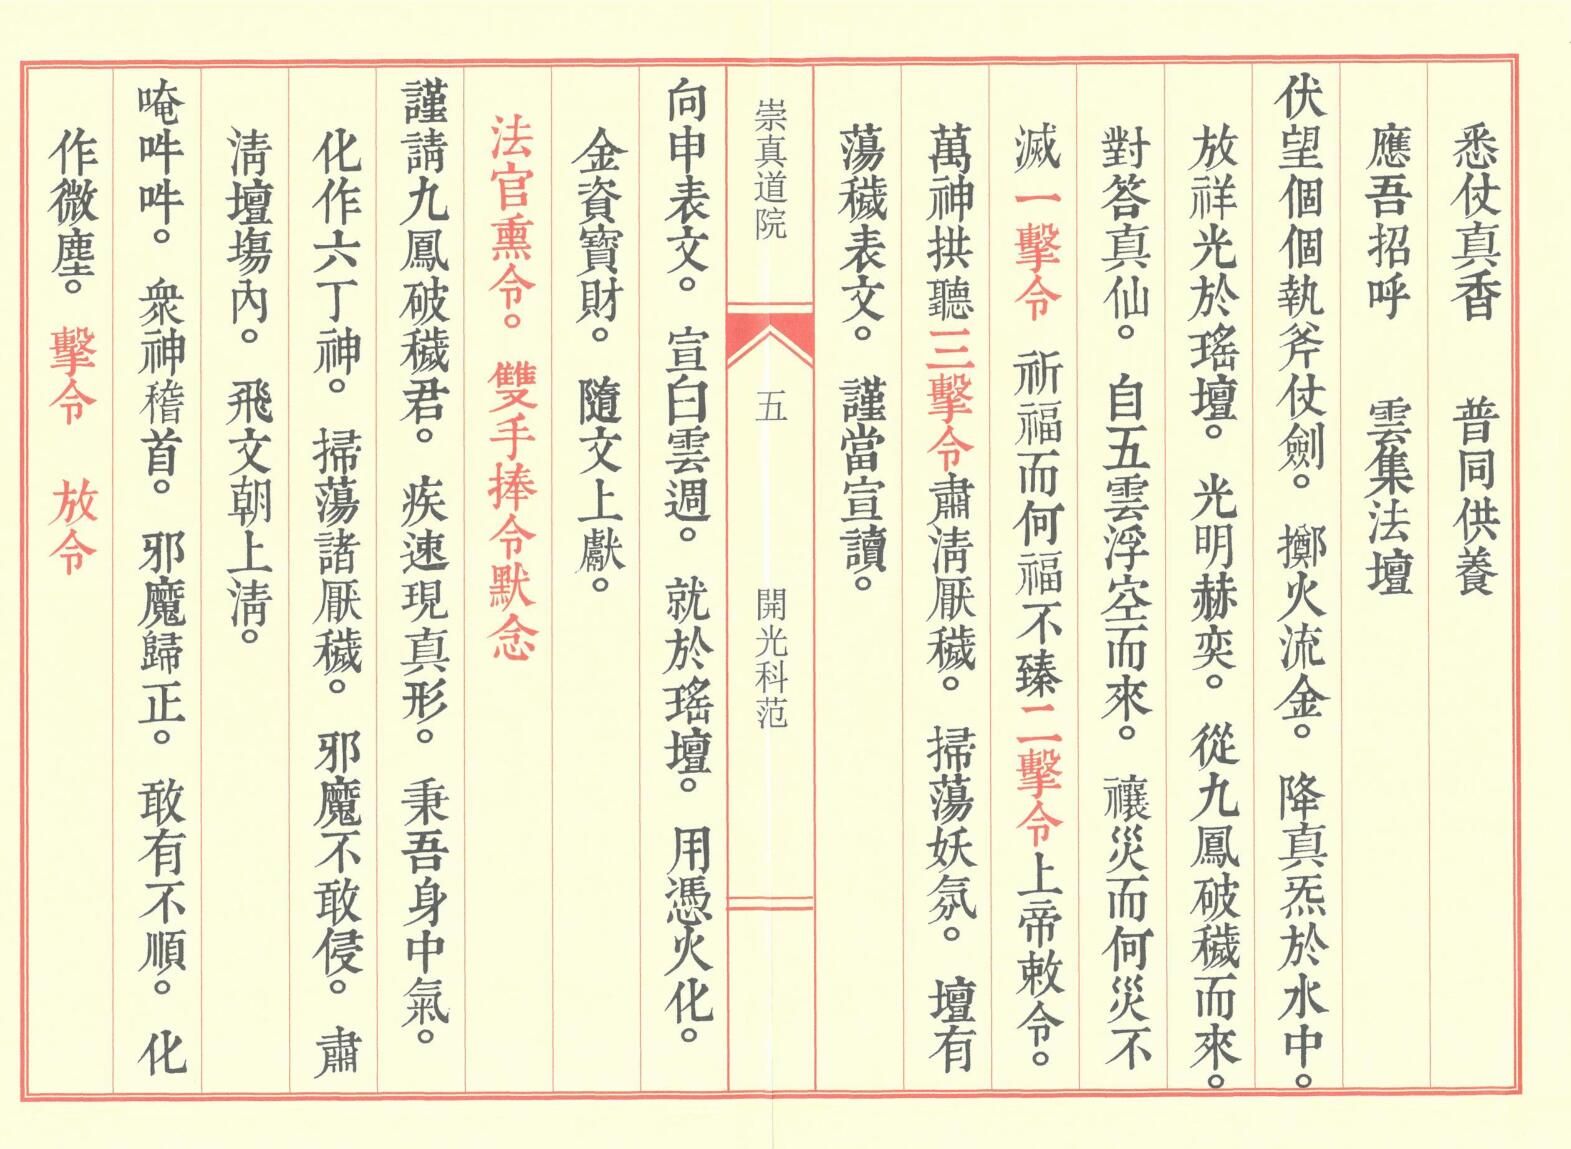 悉仗真香　普同供養
應吾招呼　雲集法壇
伏望個個執斧仗劍。擲火流金。降真炁於水中。
放祥光於瑤壇。光明赫奕。從九鳳破穢而來。
對答真仙。自五雲浮空而來。禳災而何災不
滅一擊令　祈福而何福不臻二擊令上帝敕令。
萬神拱聽三擊令肅淸厭穢。掃蕩妖氛。壇有
蕩穢表文。謹當宣讀。
崇真道院
五
開光科范
向申表文。宣白雲週。就於瑤壇。用憑火化。
金資寶財。隨文上獻。
法官熏令。雙手捧令默念
謹請九鳳破穢君。疾速現真形。秉吾身中氣。
化作六丁神。掃蕩諸厭穢。邪魔不敢侵。肅
淸壇塲內。飛文朝上淸。
唵吽吽。衆神稽首。邪魔歸正。敢有不順。化
作微塵。擊令　放令